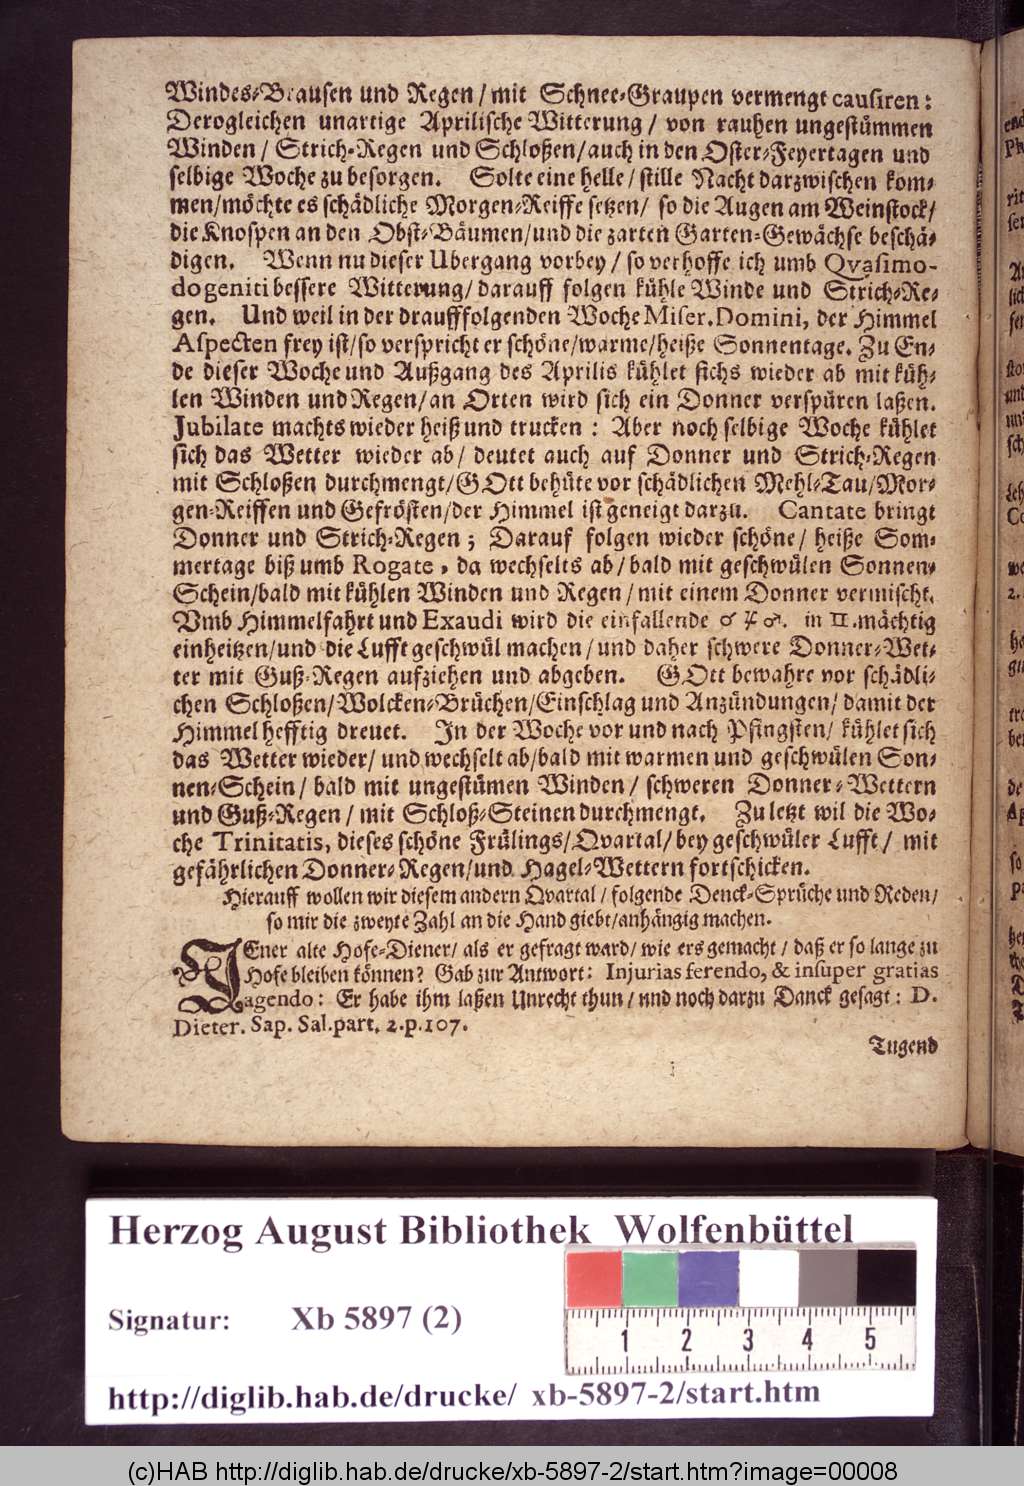 Windes-Brausen und Regen / mit Schnee-Graupen vermengt causiren:
Derogleichen unartige Aprilische Witterung / von rauhen ungestümmen
Winden / Strich-Regen und Schloßen / auch in den Oster-Feyertagen und
selbige Woche zu besorgen. Solte eine helle / stille Nacht darzwischen kom-
men / möchte es schädliche Morgen-Reiffe setzen / so die Augen am Weinstock /
die Knospen an den Obst-Bäumen / und die zarten Garten-Gewächse beschä-
digen. Wenn nu dieser Ubergang vorbey / so verhoffe ich umb Qvasimo-
dogeniti bessere Witterung / darauff folgen kühle Winde und Strich-Re-
gen. Und weil in der draufffolgenden Woche Miser. Domini, der Himmel
Aspecten frey ist / so verspricht er schöne / warme / heiße Sonnentage. Zu En-
de dieser Woche und Außgang des Aprilis kühlet sichs wieder ab mit küh-
len Winden und Regen / an Orten wird sich ein Donner verspüren laßen.
Jubilate machts wieder heiß und trucken : Aber noch selbige Woche kühlet
sich das Wetter wieder ab / deutet auch auf Donner und Strich-Regen
mit Schloßen durchmengt / GOtt behüte vor schädlichen Mehl-Tau / Mor-
gen-Reiffen und Gefrösten / der Himmel ist geneigt darzu. Cantate bringt
Donner und Strich-Regen ; Darauf folgen wieder schöne / heiße Som-
mertage biß umb Rogate , da wechselts ab / bald mit geschwülen Sonnen-
Schein / bald mit kühlen Winden und Regen / mit einem Donner vermischt.
Vmb Himmelfahrt und Exaudi wird die einfallende ☌ ♃ ♂. in ♊. mächtig
einheitzen / und die Lufft geschwül machen / und daher schwere Donner-Wet-
ter mit Guß-Regen aufziehen und abgeben. GOtt bewahre vor schädli-
chen Schloßen / Wolcken-Brüchen / Einschlag und Anzündungen / damit der
Himmel hefftig dreuet. In der Woche vor und nach Pfingsten / kühlet sich
das Wetter wieder / und wechselt ab / bald mit warmen und geschwülen Son-
nen-Schein / bald mit ungestümen Winden / schweren Donner-Wettern
und Guß-Regen / mit Schloß-Steinen durchmengt. Zu letzt wil die Wo-
che Trinitatis, dieses schöne Frülings / Qvartal / bey geschwüler Lufft / mit
gefährlichen Donner-Regen / und Hagel-Wettern fortschicken.
Hierauff wollen wir diesem andern Qvartal / folgende Denck-Sprüche und Reden /
so mir die zweyte Zahl an die Hand giebt / anhängig machen.
JEner alte Hofe-Diener / als er gefragt ward / wie ers gemacht / daß er so lange zu
Hofe bleiben können? Gab zur Antwort: Injurias ferendo, & insuper gratias
agendo: Er habe ihm laßen Unrecht thun / und noch darzu Danck gesagt : D.
Dieter. Sap. Sal. part. 2. p. 107.
Tugend
Herzog August Bibliothek Wolfenbüttel
Signatur: Xb 5897 (2)
1 2 3 4 5
http://diglib.hab.de/drucke/ xb-5897-2/start.htm
(c)HAB http://diglib.hab.de/drucke/xb-5897-2/start.htm?image=00008